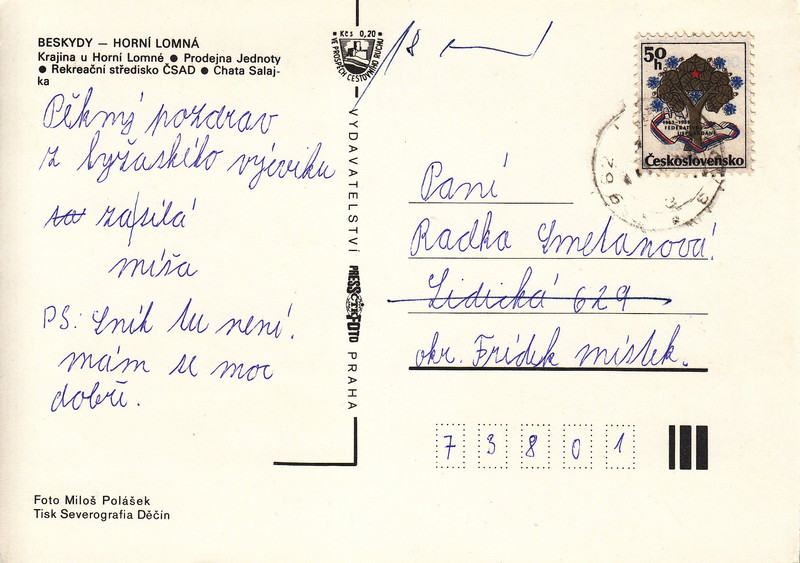 BESKYDY — HORNÍ LOMNÁ
Krajina u Horní Lomné ● Prodejna Jednoty
● Rekreační středisko ČSAD ● Chata Salaj-
ka
Pěkný pozdrav
z lyžaského výcviku
zasílá
míša
PS: Sníh tu není.
mám se moc
dobře.
Foto Miloš Polášek
Tisk Severografia Děčín
Kčs 0,20
VE PROSPĚCH CESTOVNÍHO RUCHU
VYDAVATELSTVÍ PRESSFOTO PRAHA
ČTK
18
50h
1968–1988
Československo
Paní
Radka Smetanová
Lidická 629
okr. Frídek místek.
73801